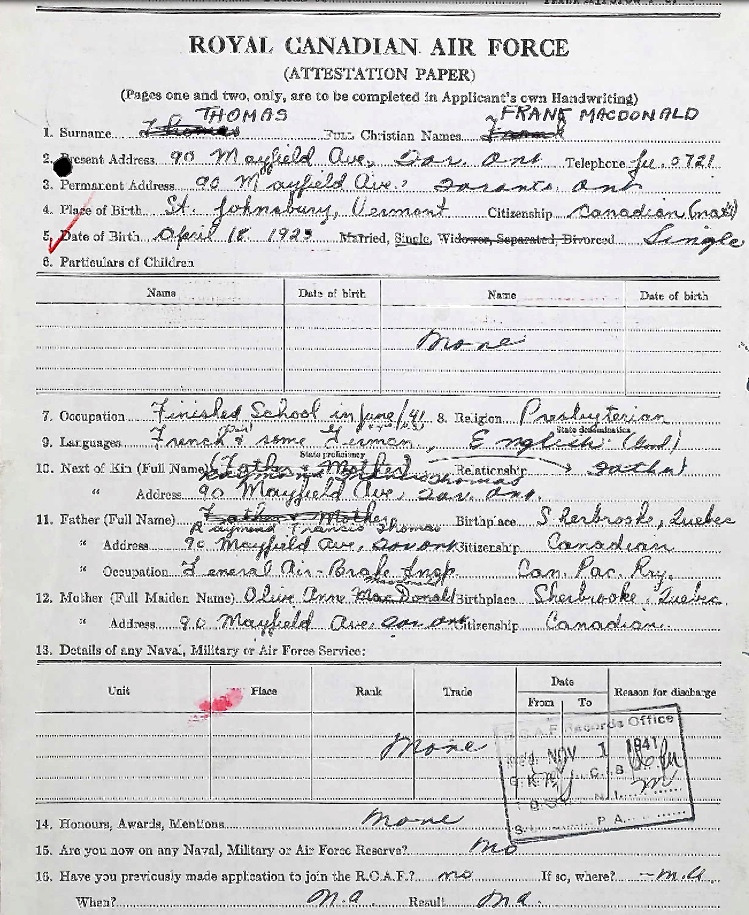 ROYAL CANADIAN AIR FORCE
(ATTESTATION PAPER)
(Pages one and two, only, are to be completed in Applicant's own Handwriting)
THOMAS FRANK MACDONALD
1. Surname Thomas Full Christian Names Frank
2. Present Address 90 Mayfield Ave, Tor. Ont Telephone Ju. 0721
3. Permanent Address 90 Mayfield Ave. Toronto, Ont
4. Place of Birth St. Johnsbury, Vermont Citizenship Canadian (nat)
5. Date of Birth April 18 1923 Married, Single, Widower, Separated, Divorced Single
6. Particulars of Children
Name Date of birth Name Date of birth
None
7. Occupation Finished School in June/41 8. Religion Presbyterian
State denomination
(fair)
9. Languages French & some German, English
State proficiency
10. Next of Kin (Full Name) (Father & Mother) Relationship Father
Raymond Francis Thomas
" Address 90 Mayfield Ave, Tor. Ont.
11. Father (Full Name) Father & Mother Birthplace Sherbrooke, Quebec
Raymond Francis Thomas
" Address 90 Mayfield Ave, Tor Ont Citizenship Canadian
" Occupation General Air-Brake Insp. Can. Pac. Rly.
12. Mother (Full Maiden Name) Olive Anne MacDonald Birthplace Sherbrooke, Quebec.
" Address 90 Mayfield Ave. Tor Ont Citizenship Canadian.
13. Details of any Naval, Military or Air Force Service:
Unit Place Rank Trade Date Reason for discharge
From To
None
R.C.A.F. Records Office
NOV 1 1941
C. B.
N. I.
S. P. A.
14. Honours, Awards, Mentions None
15. Are you now on any Naval, Military or Air Force Reserve? No
16. Have you previously made application to join the R.C.A.F.? no If so, where? - n.a
When? n.a Result n.a.